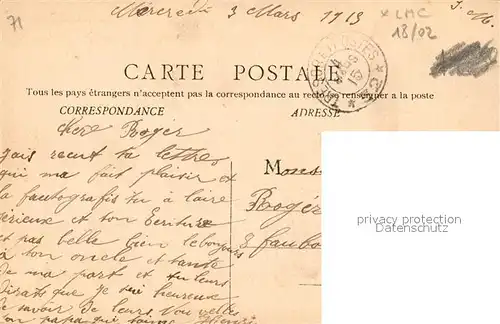 71
Mercredi 3 Mars 1915
x LMC
18/02
J. M.
CARTE POSTALE
Tous les pays étrangers n'acceptent pas la correspondance au recto (se renseigner a la poste
CORRESPONDANCE
ADRESSE
TRESOR ET POSTES
chere Roger
Jais recut ta lettre
qui ma fait plaisir et
la fautografis tu a laire
serieux et ton Ecriture
et pas belle bien le bonjour
a ton oncle et tante
de ma part et tu leurs
disats que je sui heureux
de savoir de leurs
ton papa qui
Mons
Roger
8 faubo
privacy protection
© my-mail LMC